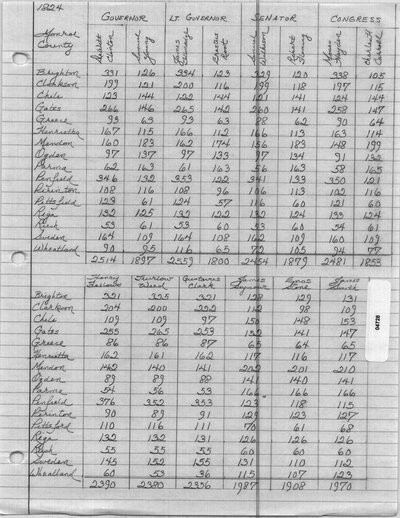 1824
GOVERNOR LT. GOVERNOR SENATOR CONGRESS
Monroe County
DeWitt Clinton Samuel Young James Tallmadge Erastus Root Samuel Wilkeson Robert Fleming Moses Hayden Charles H. Carroll
Brighton 331 126 334 123 329 120 338 105
Clarkson 199 121 200 116 199 118 197 115
Chili 123 144 122 144 121 141 124 144
Gates 266 146 265 142 260 141 258 147
Greece 93 63 93 63 88 62 90 64
Henrietta 167 115 166 112 166 113 163 114
Mendon 160 183 162 174 156 183 148 199
Ogden 97 137 97 133 97 134 91 132
Parma 62 163 61 163 56 163 58 165
Penfield 346 132 353 122 341 133 350 121
Perinton 108 116 108 96 106 113 102 116
Pittsford 123 61 124 57 116 60 121 60
Riga 132 125 132 122 132 124 133 124
Rush 53 61 53 60 53 60 54 61
Sweden 164 109 164 108 162 109 160 109
Wheatland 90 95 116 65 72 105 94 77
2514 1897 2559 1800 2454 1879 2481 1853
Henry Fellows Thurlow Weed Gustavus Clark James Seymour Enos Stone James Smith
Brighton 321 325 321 128 129 131
Clarkson 204 200 222 112 98 109
Chili 109 109 97 150 148 153
Gates 255 265 253 152 141 147
Greece 86 86 87 65 64 65
Henrietta 162 161 162 117 116 117
Mendon 142 140 141 202 201 210
Ogden 89 89 88 141 140 141
Parma 54 56 53 166 166 166
Penfield 376 352 353 123 118 115
Perinton 90 89 91 129 123 127
Pittsford 110 116 111 70 61 68
Riga 132 132 131 126 126 126
Rush 55 55 55 60 60 60
Sweden 145 152 155 131 110 112
Wheatland 60 53 36 115 107 123
2390 2380 2356 1987 1908 1970
04728